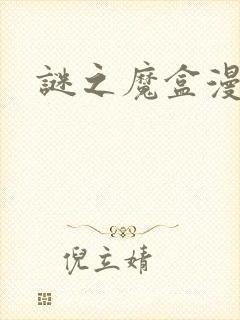 謎之魔盒漫
倪立婧